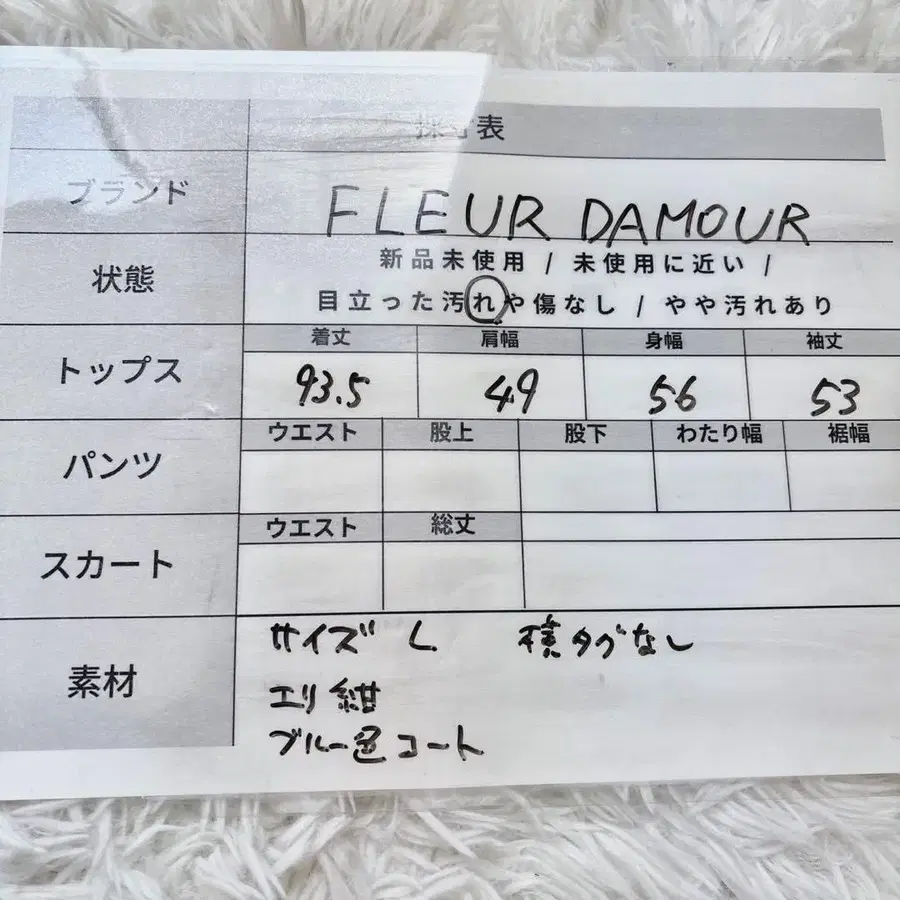 採寸表
ブランド FLEUR DAMOUR
状態 新品未使用 / 未使用に近い /
目立った汚れや傷なし / やや汚れあり
トップス 着丈 肩幅 身幅 袖丈
93.5 49 56 53
パンツ ウエスト 股上 股下 わたり幅 裾幅
スカート ウエスト 総丈
素材 サイズ L 横タグなし
エリ紺
ブルー色コート